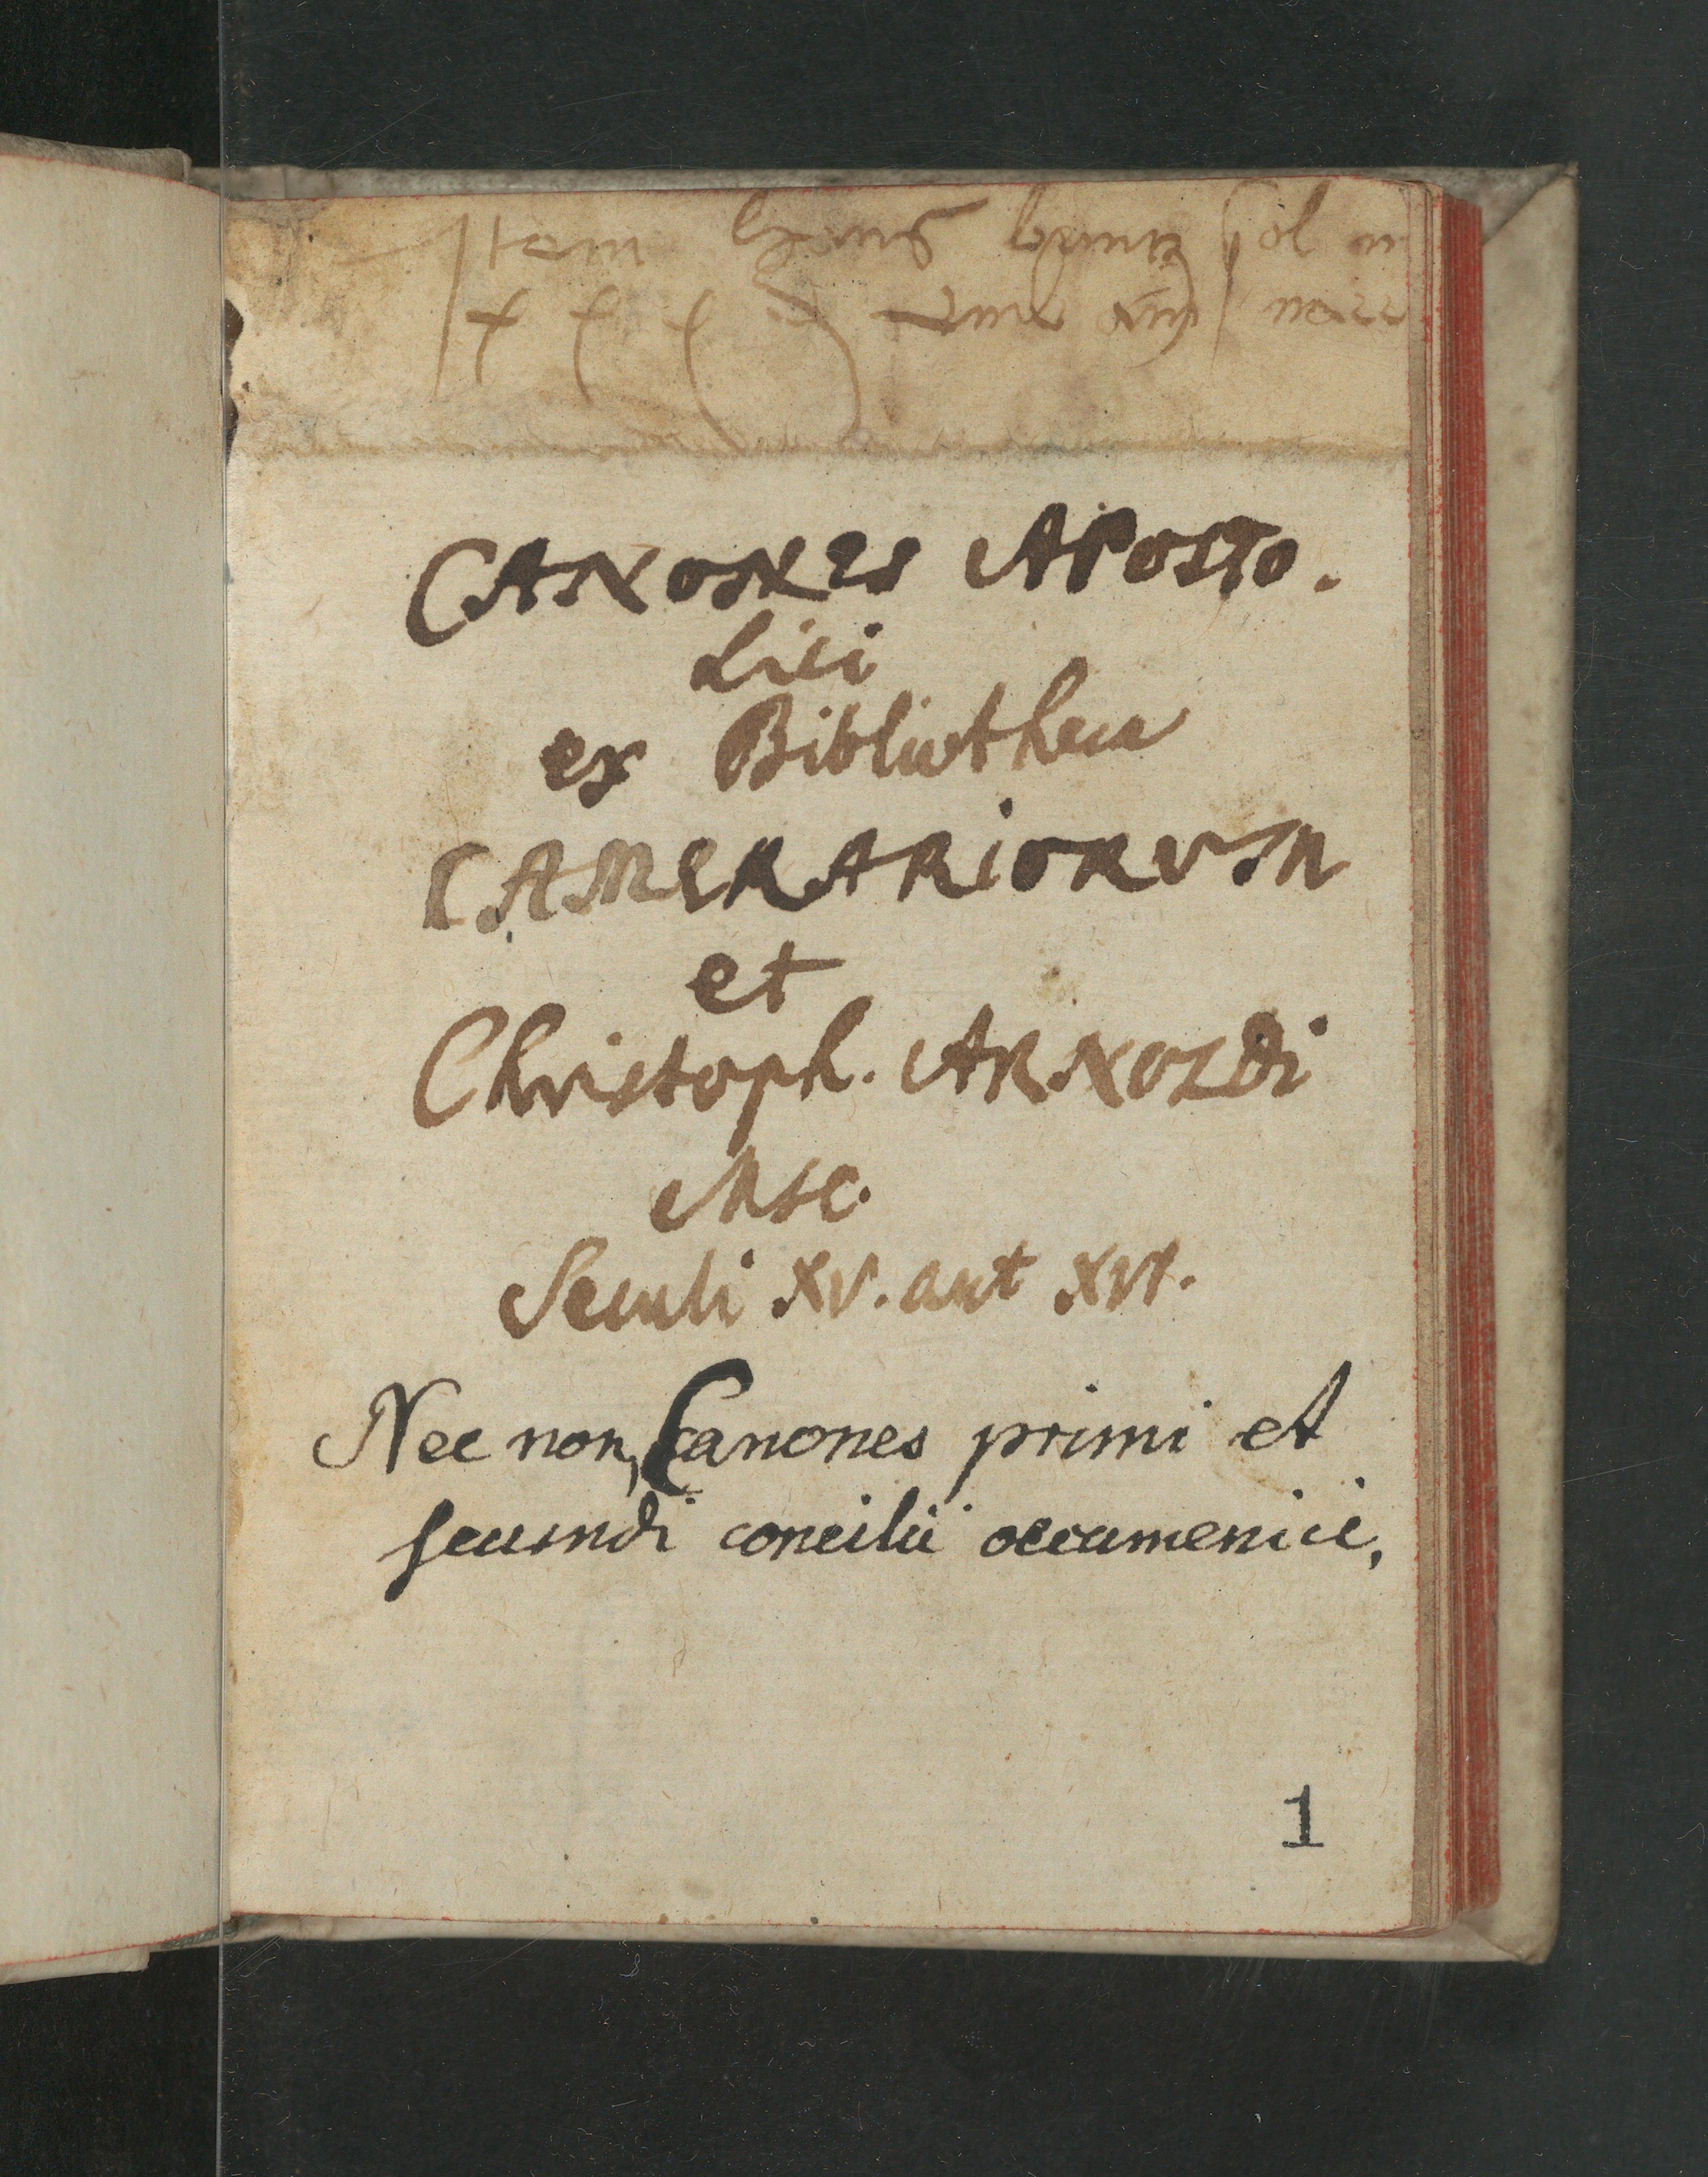 Item hans
CANONES APOSTO.
Lici
ex Bibliotheca
CAMERARIORUM
et
Christoph. ARNOLDi
Msc.
Seculi XV. aut XVI.
Nec non, Canones primi et
secundi concilii oecumenici,
1